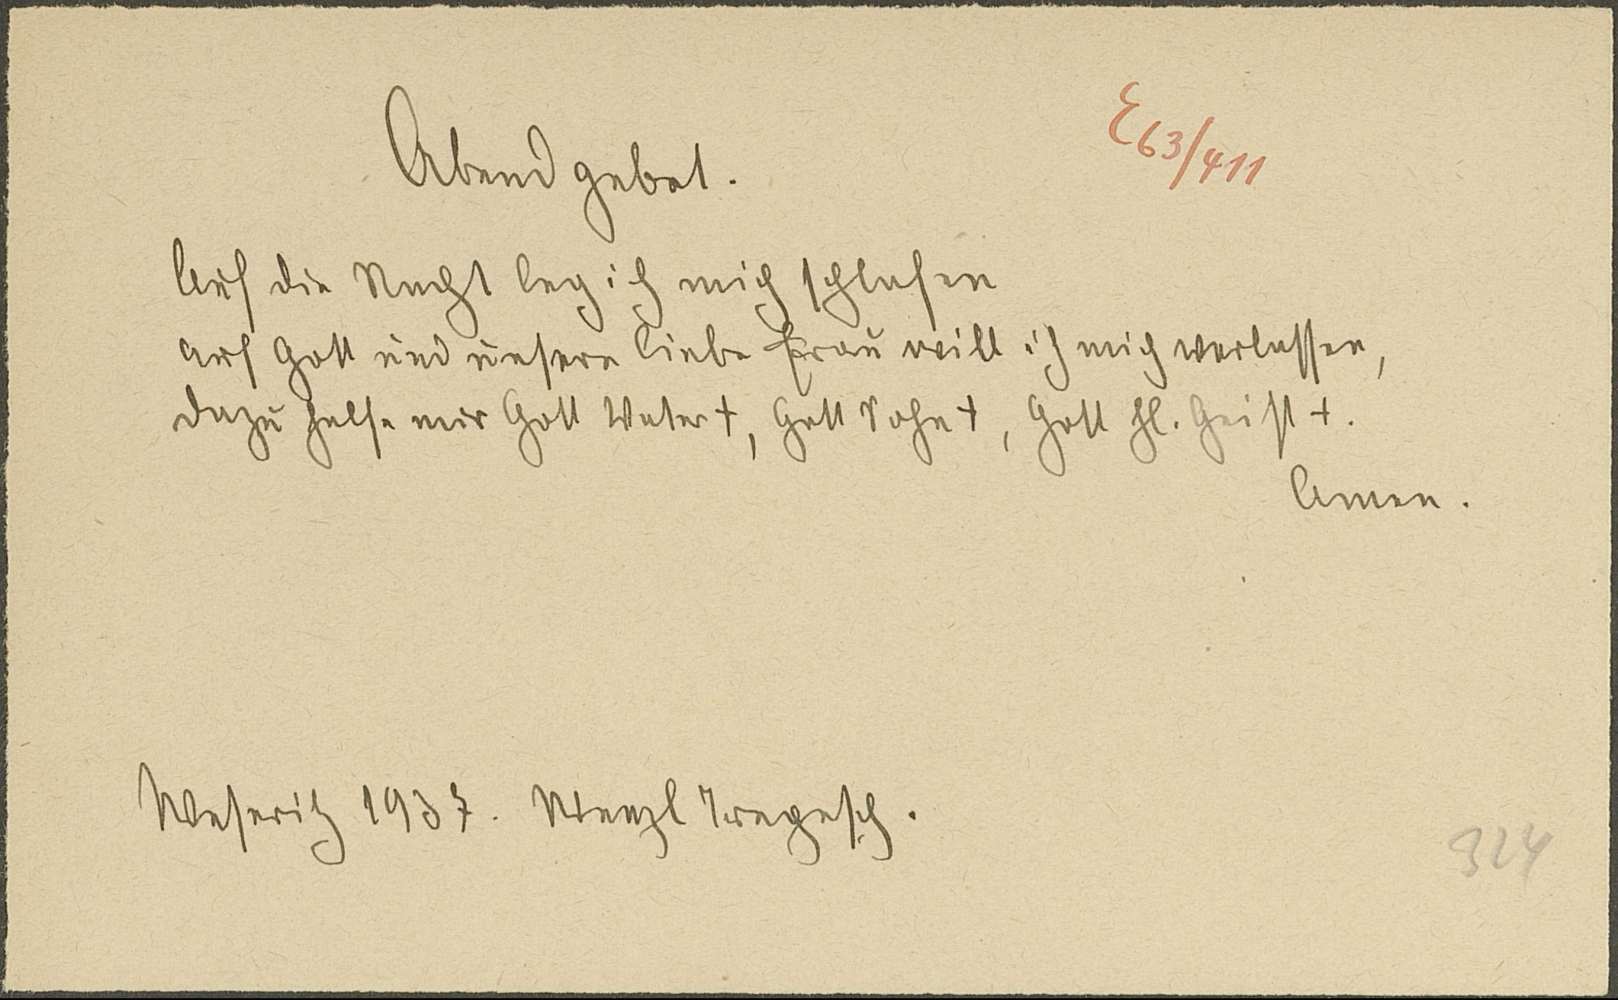 Abendgebet.
E63/411
Auf die Nacht leg ich mich schlafen
auf Gott und unsere liebe Frau will ich mich verlassen,
dazu helfe mir Gott Vater +, Gott Sohn +, Gott hl. Geist +.
Amen.
Weseritz 1937. Wenzl
324